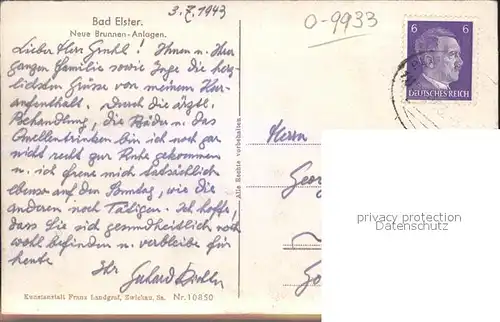 3.7.1943
O-9933
Bad Elster.
Neue Brunnen-Anlagen.
Lieber Herr Grukl! Ihnen u. Ihrer
ganzen Familie sowie Inge die herz-
lichsten Grüsse von meinem Kur-
aufenthalt. Durch die ärztl.
Behandlung, die Bäder u. das
Quellentrinken bin ich noch gar
nicht recht zur Ruhe gekommen
u. ich freue mich tatsächlich
ebenso auf den Sonntag, wie die
anderen noch Tätigen. Ich hoffe,
dass Sie sich gesundheitlich noch
wohl befinden u. verbleibe für
heute
Ihr Gerhard
Kunstanstalt Franz Landgraf, Zwickau, Sa. Nr. 10850
Alle Rechte vorbehalten
6 6
DEUTSCHES REICH
Herrn
Georg
privacy protection
Datenschutz